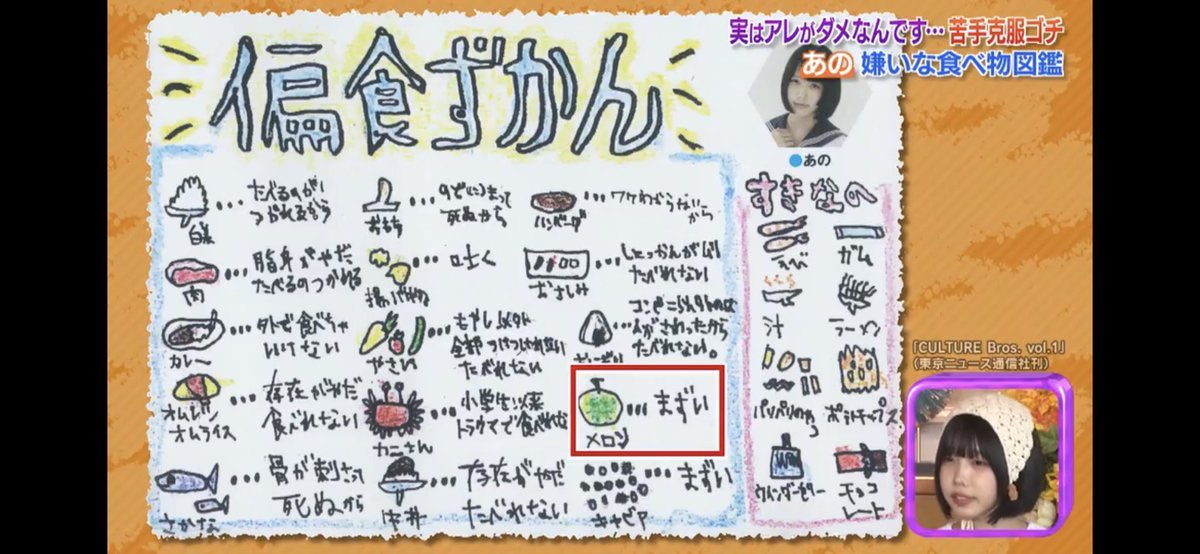 実はアレがダメなんです…苦手克服ゴチ
あの 嫌いな食べ物図鑑
偏食ずかん
白米
…たべるのが
つかれるから
おもち
…のどにつまって
死ぬから
ハンバーグ
…ワケわからないから
肉
…脂身がやだ
たべるのつかれる
揚げ物
…吐く
おさしみ
…しょっかんがムリ
たべれない
カレー
…外で食べちゃ
いけない
やさい
…もやし以外
全部
たべれない
…コンビニ以外のは
人がさわったから
たべれない。
オムレツ
オムライス
…存在がやだ
食べれない
カニさん
…小学生以来
トラウマで食べれない
メロン
…まずい
さかな
…骨が刺さって
死ぬから
牛丼
…存在がやだ
たべれない
キャビア
…まずい
あの
すきなもの
えび
ガム
汁
ラーメン
パリパリのやつ
ポテトチップス
ウィンダーゼリー
チョコ
レート
「CULTURE Bros. vol.1」
(東京ニュース通信社刊)